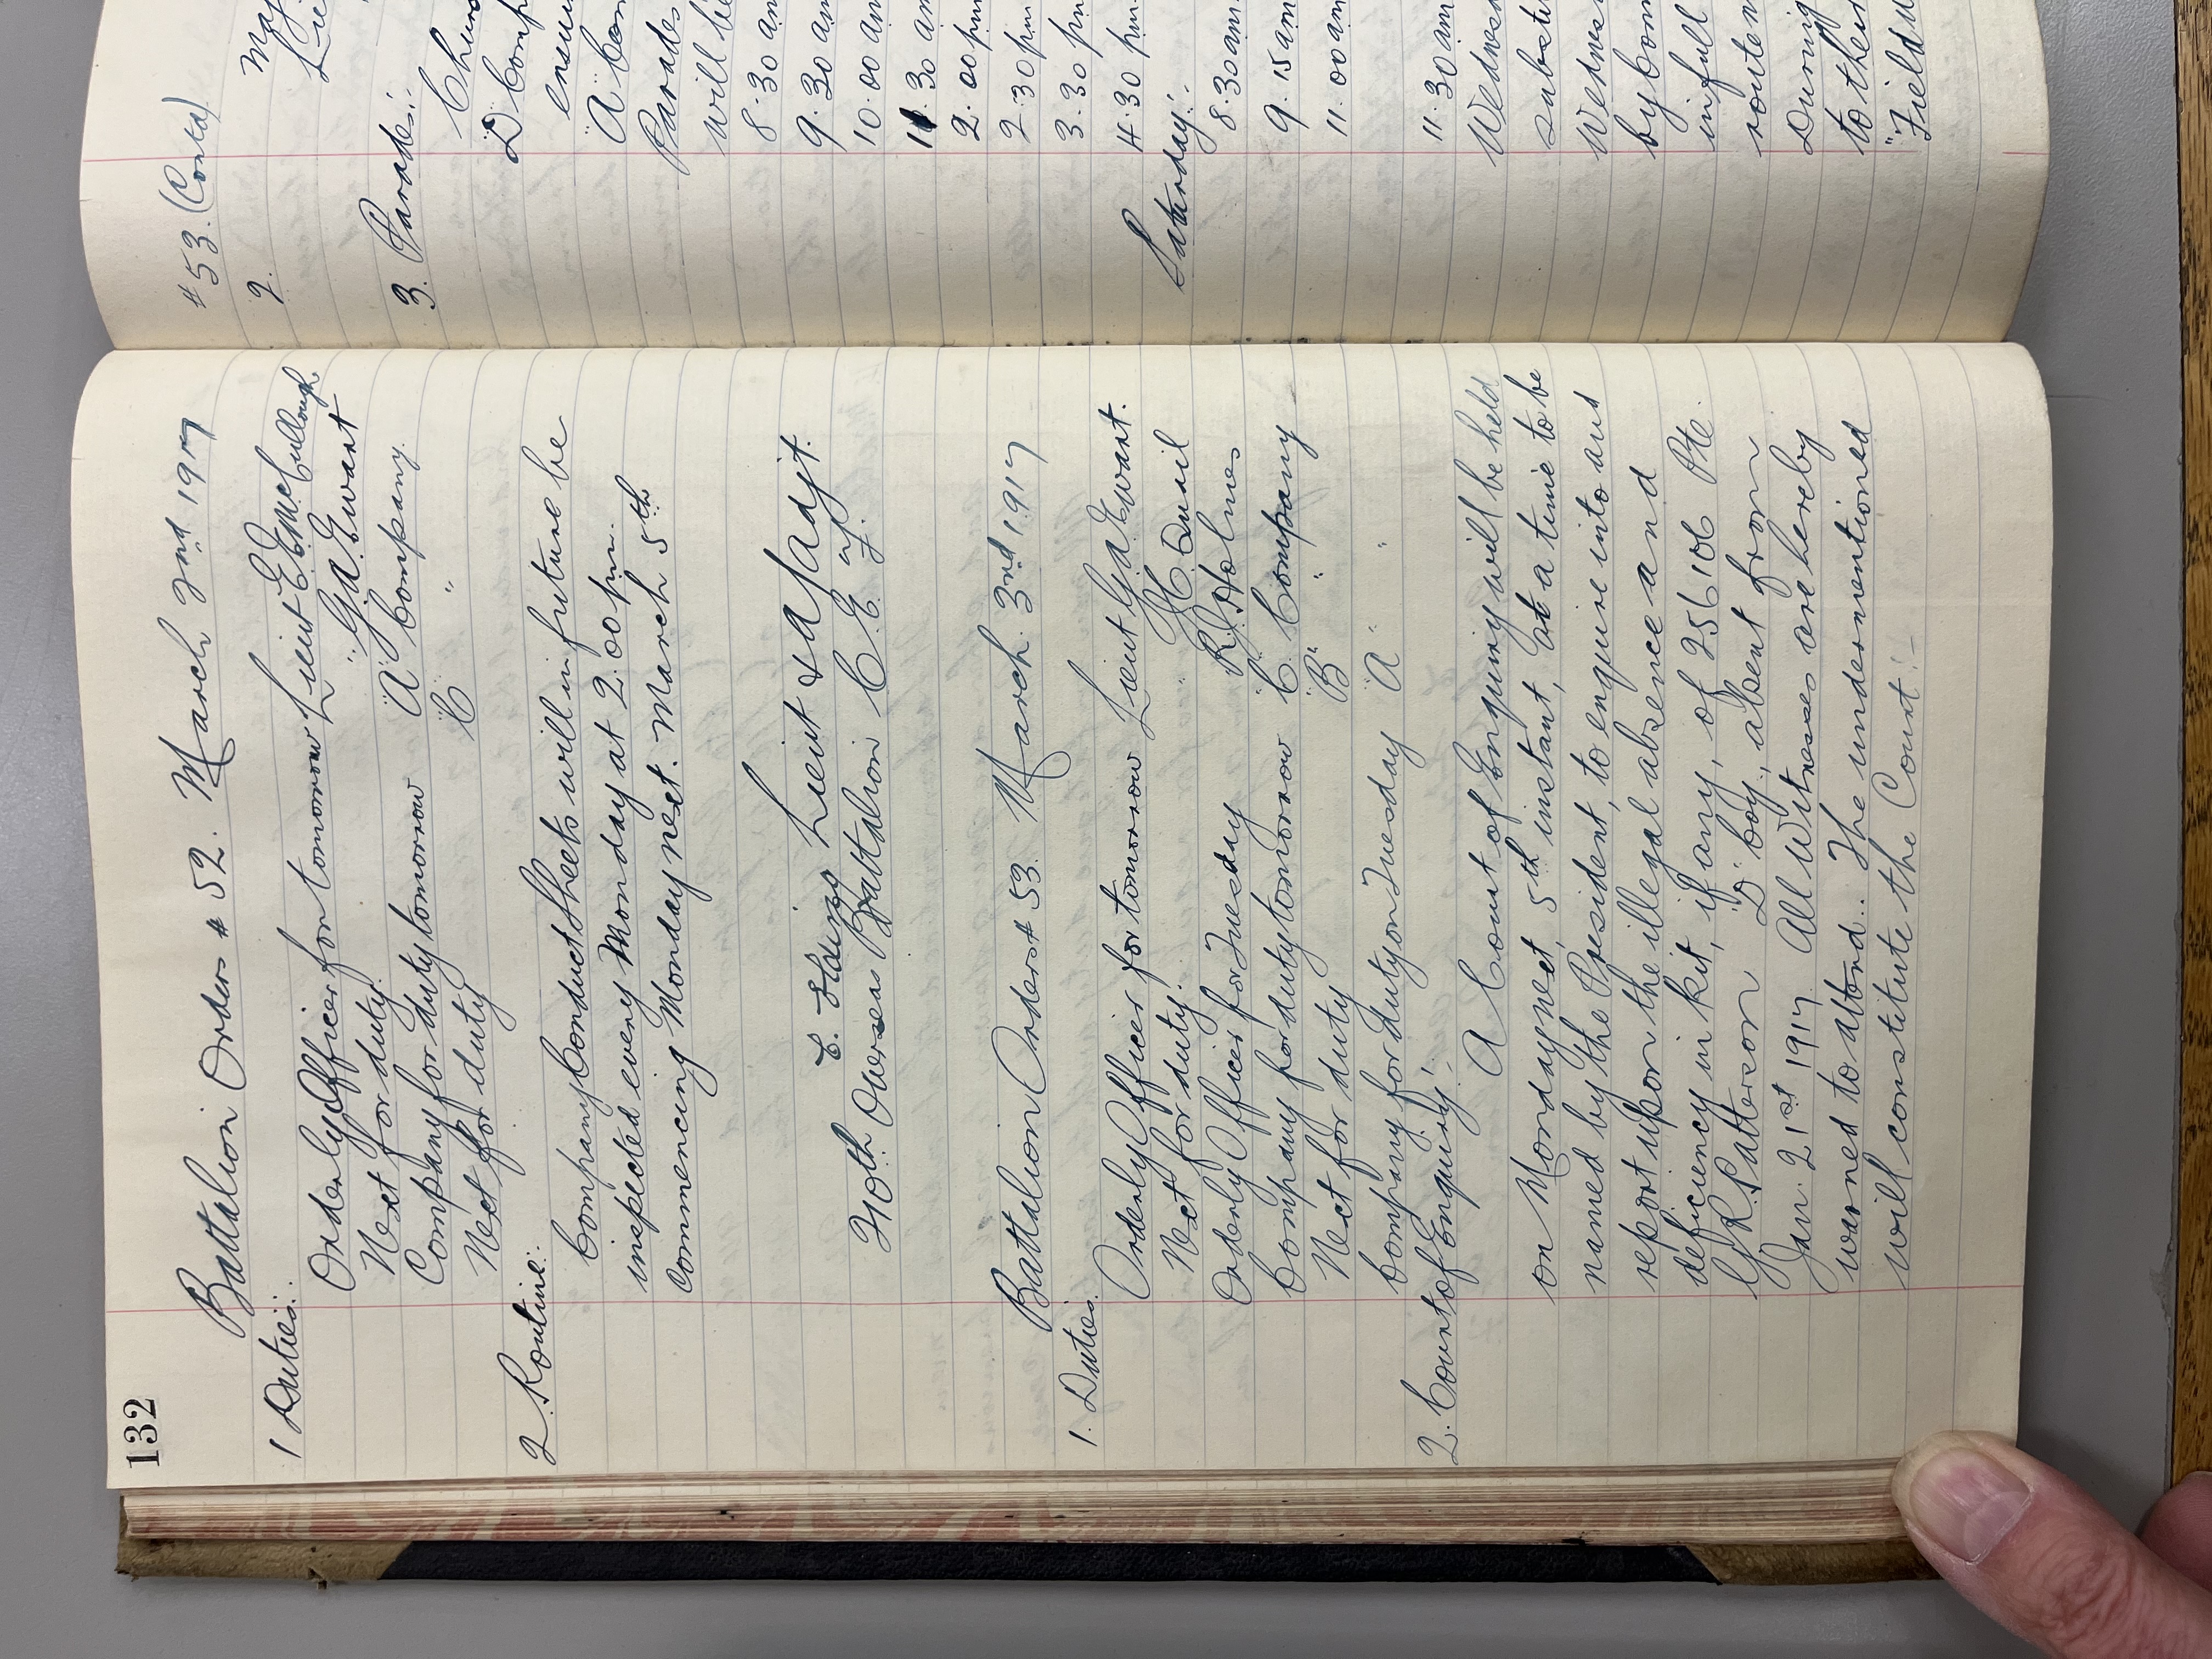 132
Battalion Orders # 52. March 2nd 1917
1 Duties:.
Orderly Officer for tomorrow Lieut E.E. McCullough
Next for duty. " G.A. Ewart
Company for duty tomorrow "A" Company
Next for duty "C" "
2 Routine:.
Company Conduct Sheets will in future be
inspected every Monday at 2.00 pm.
commencing Monday next. March 5th
Lieut & A/Adjt.
210th Overseas Battalion C.E.F.
Battalion Orders # 53. March 3rd 1917
1. Duties.
Orderly Officer for tomorrow Lieut G.A. Ewart.
Next for duty. " H.C. Quail
Orderly Officer for Tuesday " R.J. Holmes
Company for duty tomorrow "C" Company
Next for duty "B" "
Company for duty on Tuesday "A" "
2. Court of Enquiry:-
A Court of Enquiry will be held
on Monday next, 5th instant, at a time to be
named by the President, to enquire into and
report upon the illegal absence and
deficiency in kit, if any, of 256106 Pte.
G.R. Patterson "D" Coy., absent from
Jan. 21st 1917. All Witnesses are hereby
warned to attend.. The undermentioned
will constitute the Court:-
# 53. (Contd)
2.
3. Parades:-
D Comp
"A" Com
Parades
will be
8.30 am
9.30 am
10.00 am
11.30 am
2.00 pm
2.30 pm
3.30 pm
4.30 pm
Saturday:-
8.30 am
9.15 am
11.00 am
11.30 am
Wednes
substi
Wednes
by Com
in full
route m
During
to the
"Field